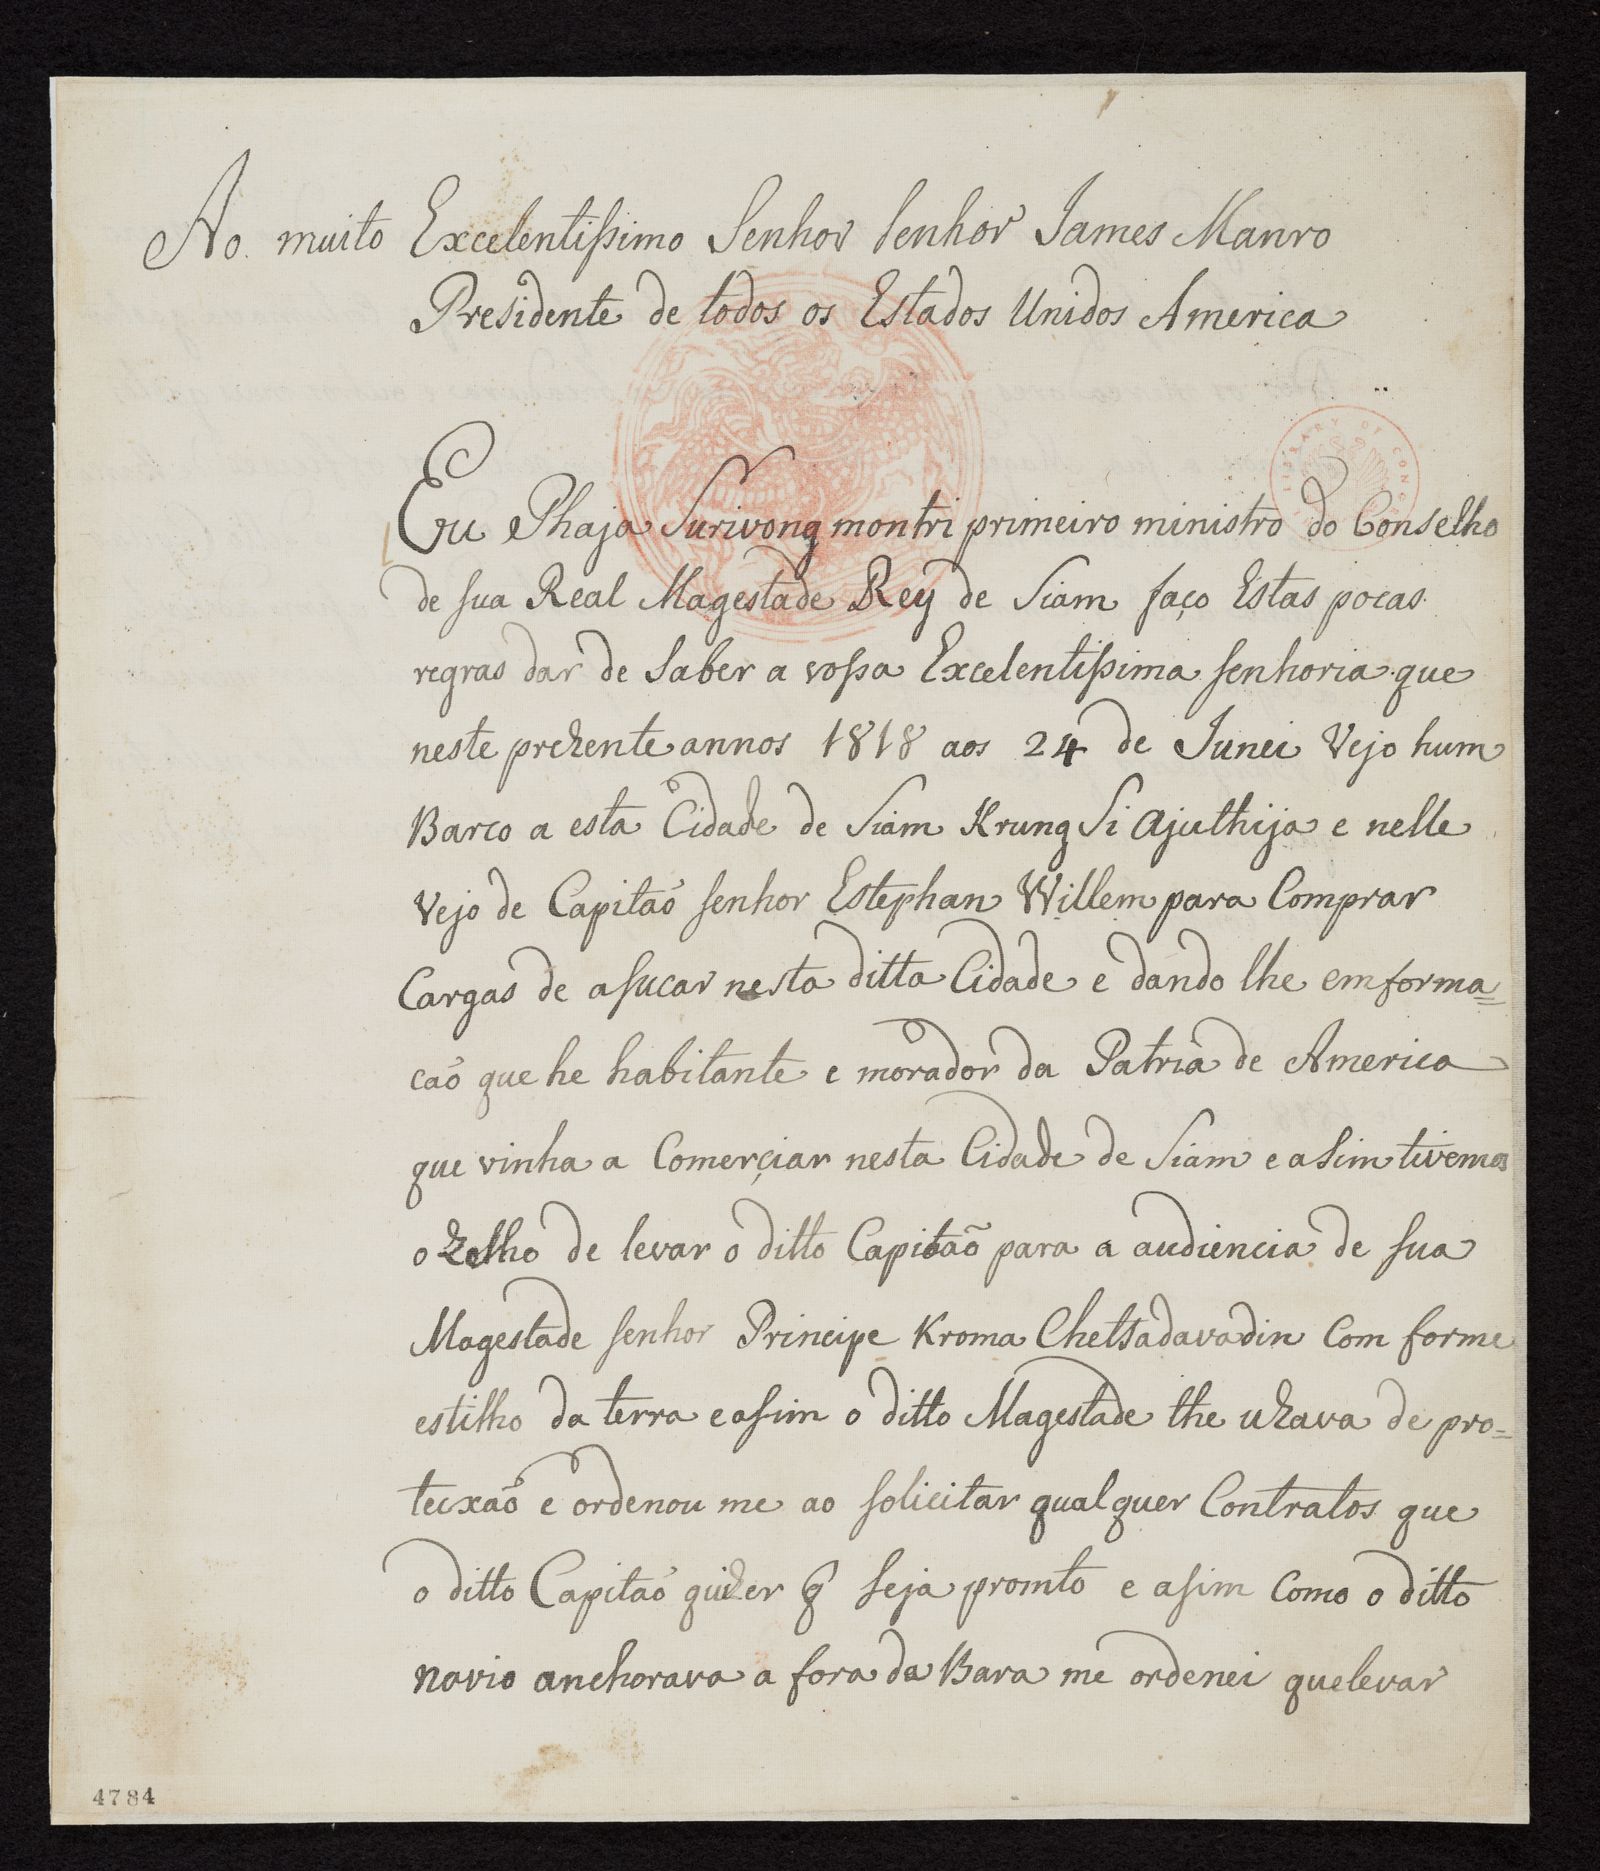 Ao muito Excelentißimo Senhor Senhor James Manro
Presidente de todos os Estados Unidos America
LIBRARY OF CONG
Eu Phaja Surivong montri primeiro ministro do Conselho
de sua Real Magestade Rey de Siam faço Estas pocas
regras dar de Saber a voßa Excelentißima senhoria que
neste prezente annos 1818 aos 24 de Junei Vejo hum
Barco a esta Cidade de Siam Krung Si Ajuthija e nelle
Vejo de Capitaõ senhor Estephan Willem para Comprar
Cargas de asucar nesta ditta Cidade e dando lhe emforma=
caõ que he habitante e morador da Patria de America
que vinha a Comerçiar nesta Cidade de Siam e asim tivemos
o zelho de levar o ditto Capitaõ para a audiencia de sua
Magestade senhor Principe Kroma Chetsadavadin Com forme
estilho da terra e asim o ditto Magestade lhe uzava de pro=
teixaõ e ordenou me ao solicitar qualquer Contratos que
o ditto Capitaõ quizer q̃ seja promto e asim Como o ditto
navio anchorava a fora da Bara me ordenei quelevar
4784